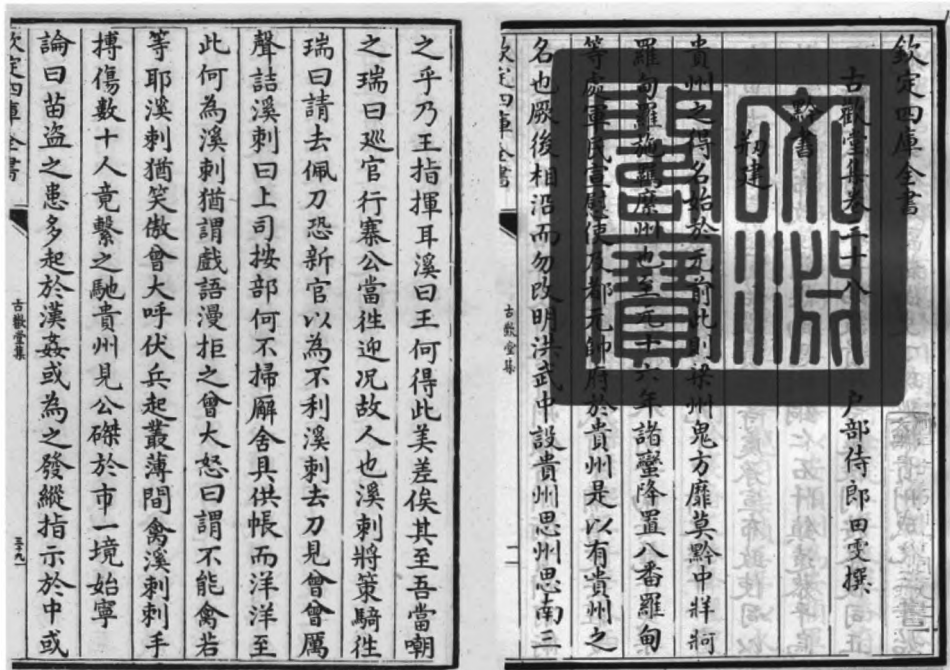 欽定四庫全書
文淵閣寶
古歡堂集卷三十八　戶部侍郎田雯撰
黔書
剏建
貴州之得名始於元前此則梁州鬼方靡莫黔中牂牁
羅甸羅施羈縻州也至元十六年諸蠻降置八番羅甸
等處軍民宣慰使及都元帥府於貴州是以有貴州之
名也厥後相沿而勿改明洪武中設貴州思州思南三
欽定四庫全書
古歡堂集
一
之乎乃王指揮耳溪曰王何得此美差俟其至吾當嘲
之瑞曰巡官行寨公當徃迎况故人也溪剌將策騎徃
瑞曰請去佩刀恐新官以為不利溪剌去刀見曾曾厲
聲詰溪剌曰上司按部何不掃廨舍具供帳而洋洋至
此何為溪剌猶謂戲語漫拒之曾大怒曰謂不能禽若
等耶溪剌猶笑傲曾大呼伏兵起叢薄間禽溪剌剌手
搏傷數十人竟繫之馳貴州見公磔於市一境始寧
論曰苗盜之患多起於漢姦或為之發縱指示於中或
欽定四庫全書
古歡堂集
三十九